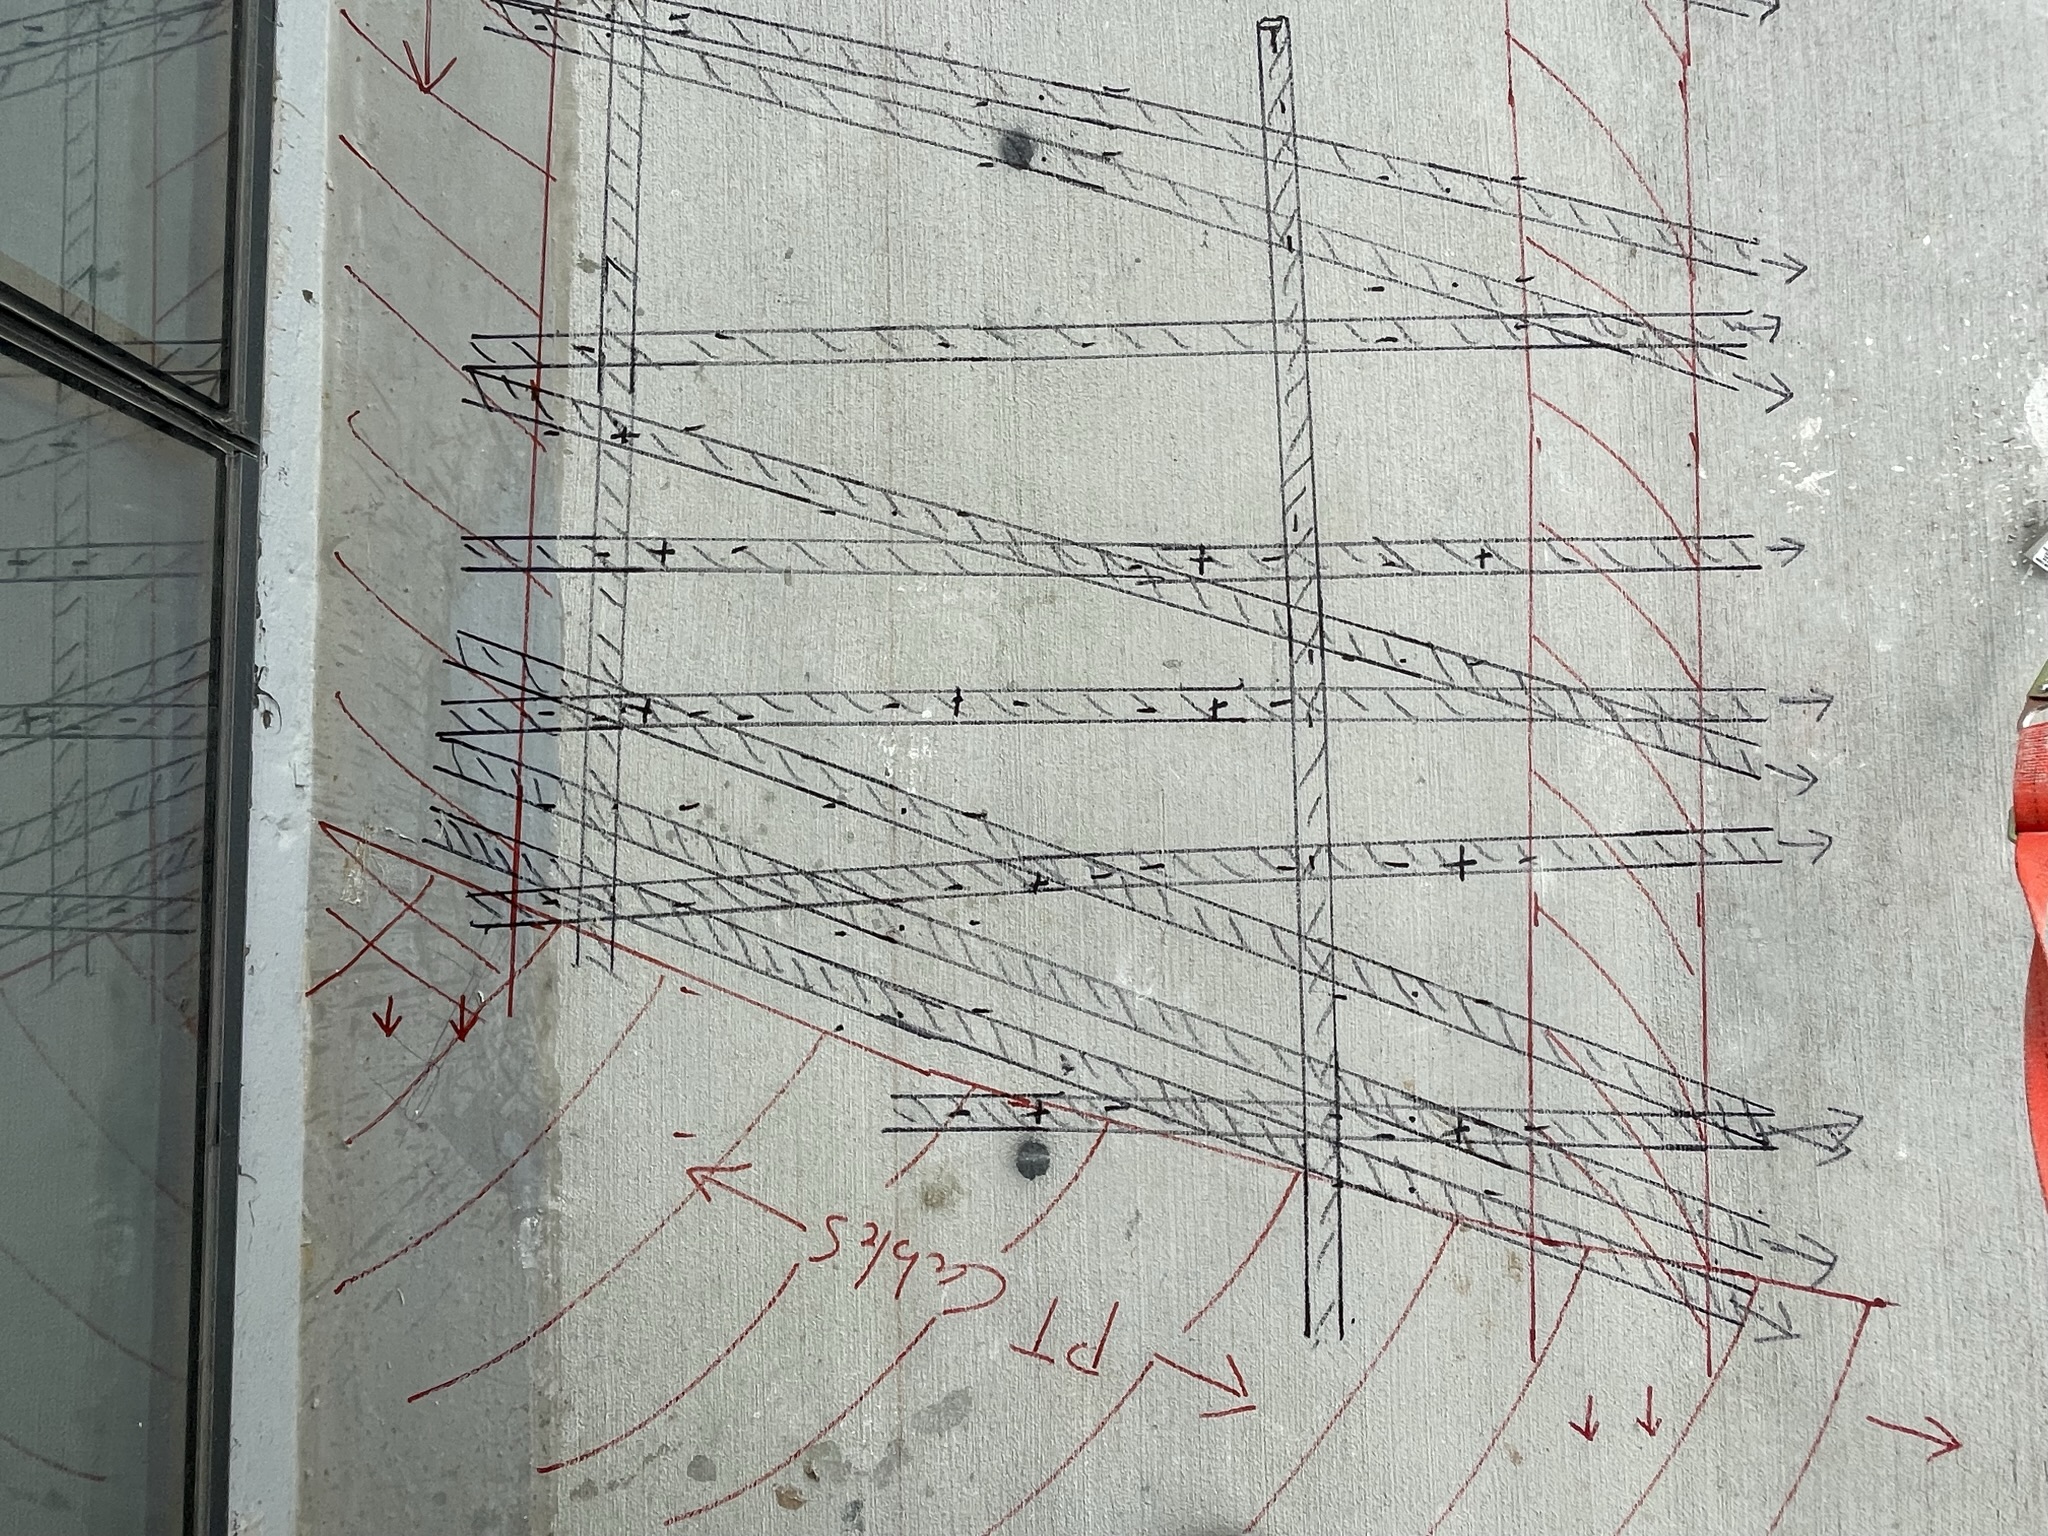 PT
Cables